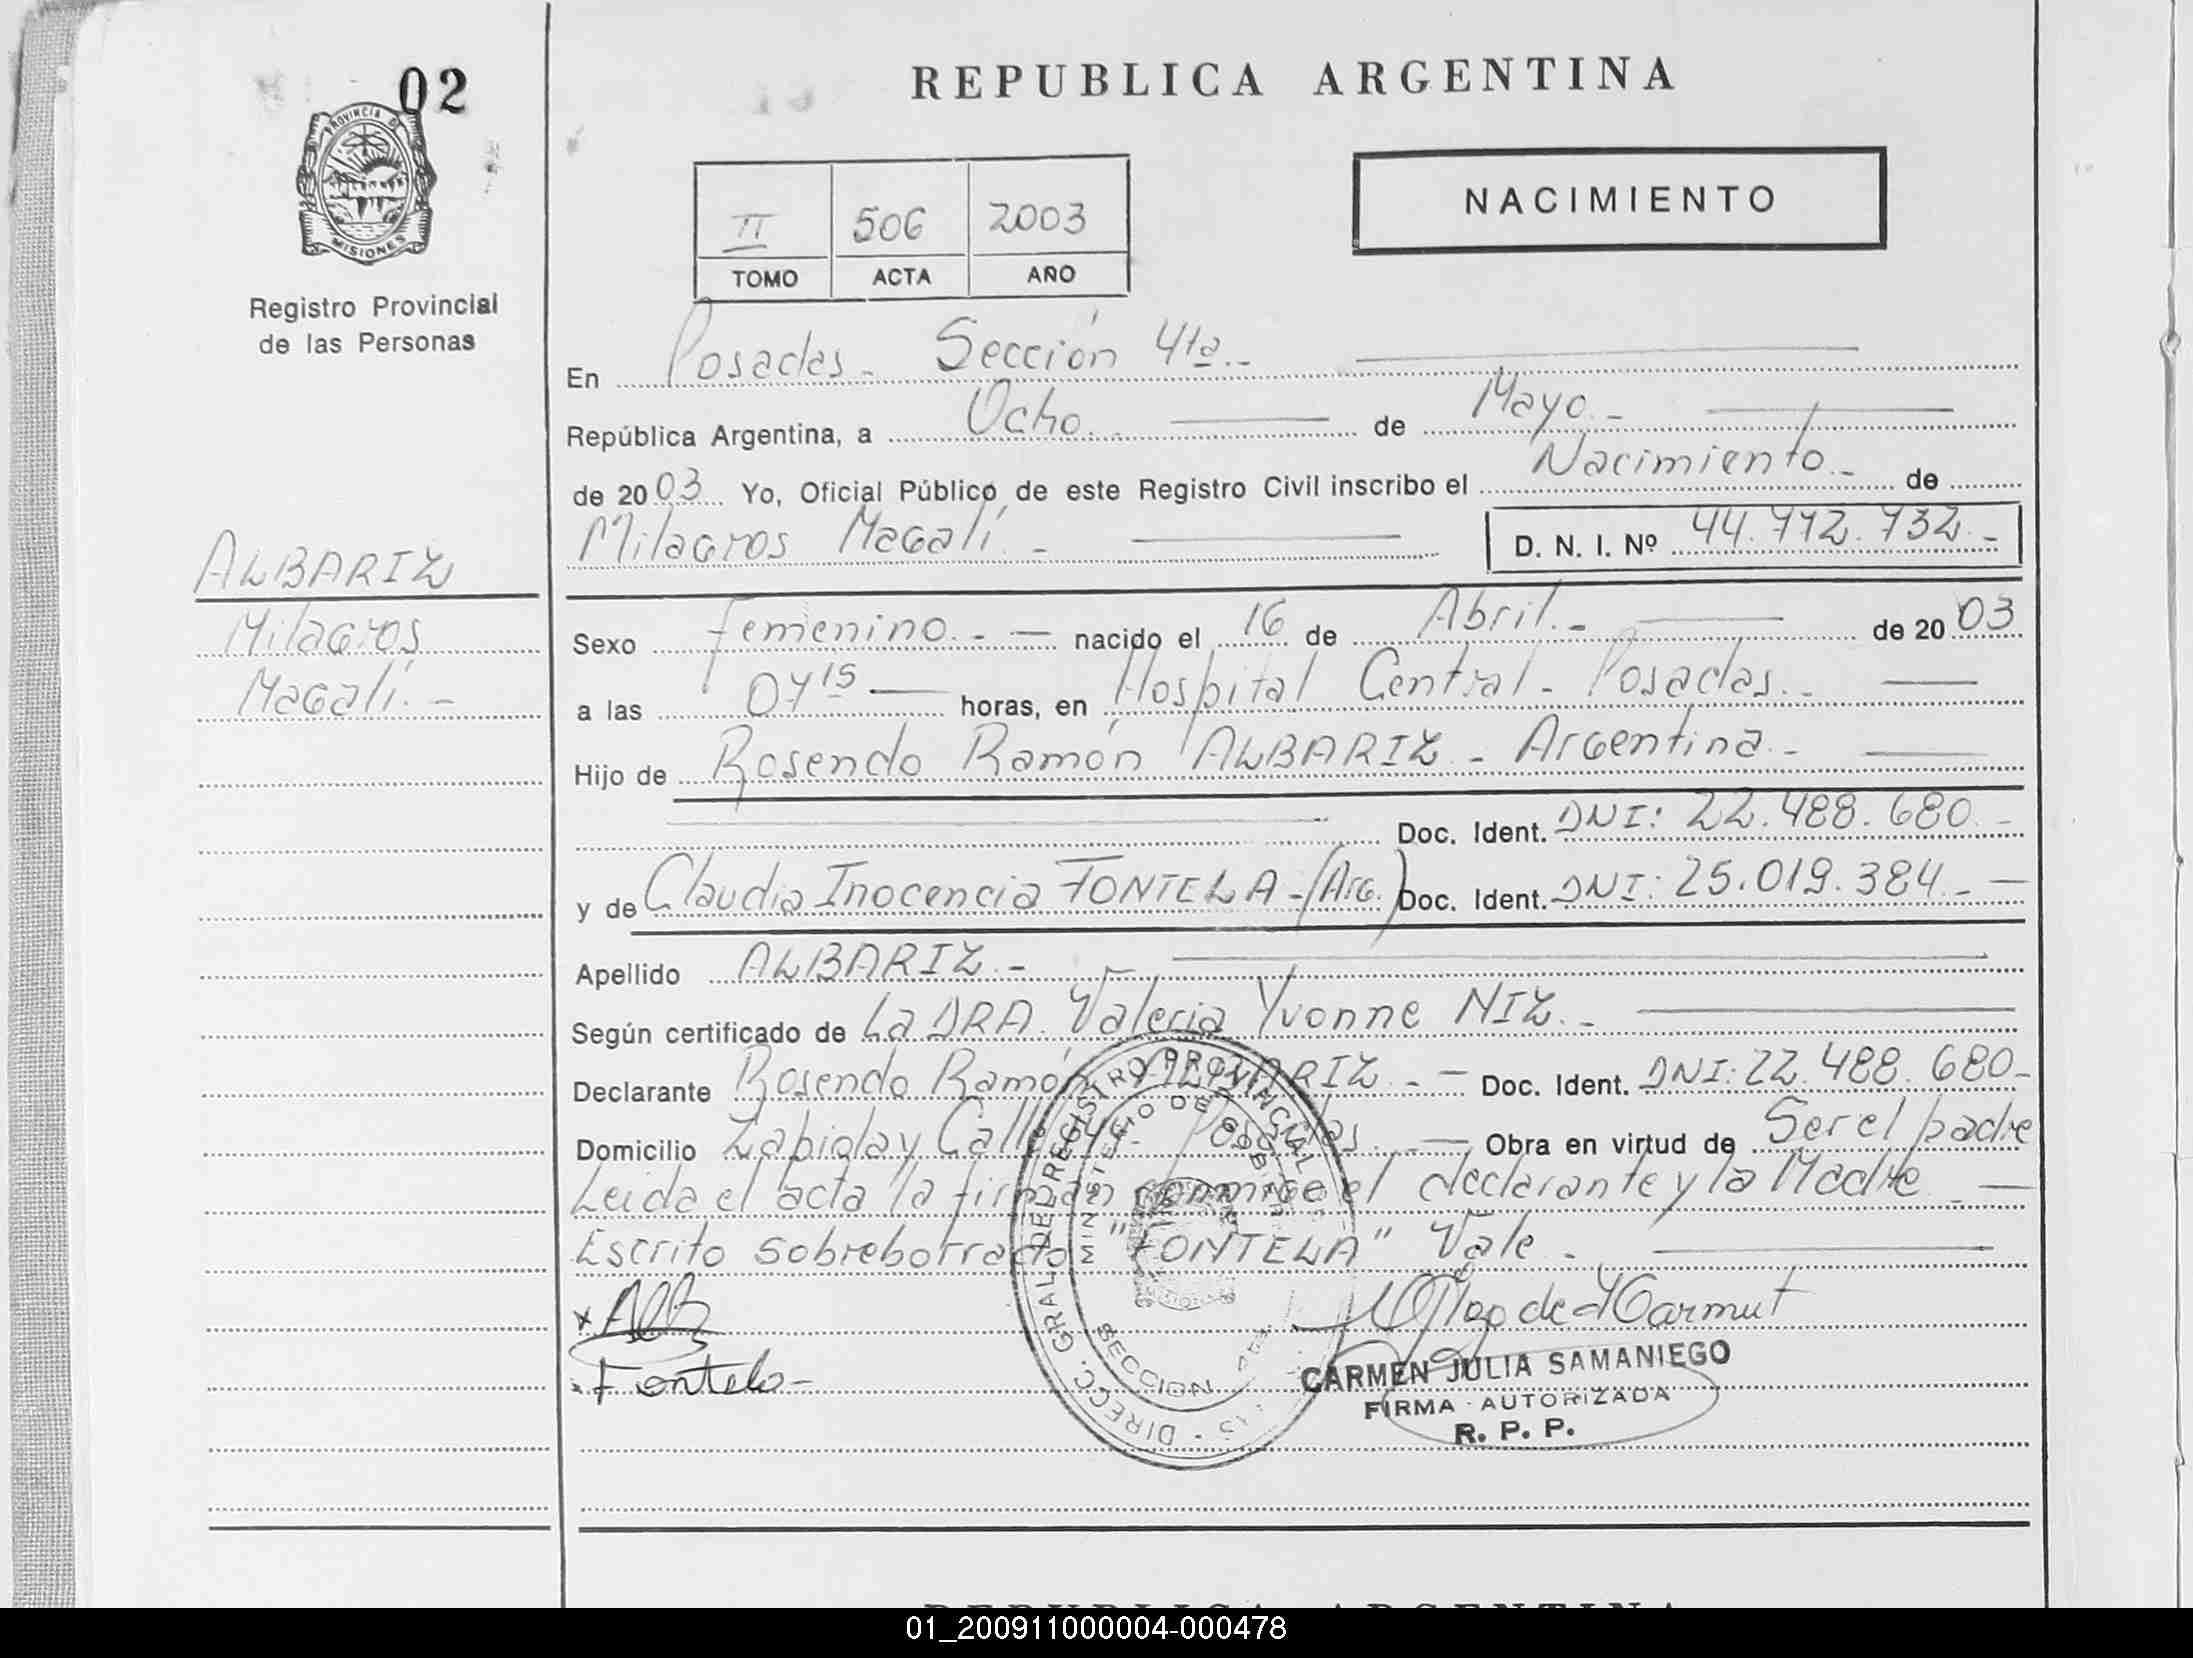 02
PROVINCIA DE
MISIONES
Registro Provincial
de las Personas
REPUBLICA ARGENTINA
NACIMIENTO
II 506 2003
TOMO ACTA AÑO
En Posadas - Sección 4ta.-
República Argentina, a Ocho de Mayo.-
de 2003 Yo, Oficial Público de este Registro Civil inscribo el Nacimiento.- de
Milagros Magalí.- D. N. I. Nº 44.772.732.-
ALBARIZ
Milagros
Magalí.-
Sexo femenino.- nacido el 16 de Abril.- de 2003
a las 07 15 horas, en Hospital Central - Posadas.-
Hijo de Rosendo Ramón ALBARIZ - Argentina.-
Doc. Ident. DNI: 22.488.680.-
y de Claudia Inocencia FONTELA - (Arg.) Doc. Ident. DNI: 25.019.384.-
Apellido ALBARIZ.-
Según certificado de La DRA. Valeria Yvonne NIZ.-
Declarante Rosendo Ramón ALBARIZ.- Doc. Ident. DNI: 22.488.680-
Domicilio Zabiolay Posadas.- Obra en virtud de Ser el padre
Leida el acta la firman conmigo el declarante y la Madre.-
Escrito sobreborrado "FONTELA" Vale.-
Fontela-
DIRECC. GRAL DEL REGISTRO PROVINCIAL
MINISTERIO DE GOBIERNO
SECCION
CARMEN JULIA SAMANIEGO
FIRMA AUTORIZADA
R. P. P.
REPUBLICA ARGENTINA
01_200911000004-000478